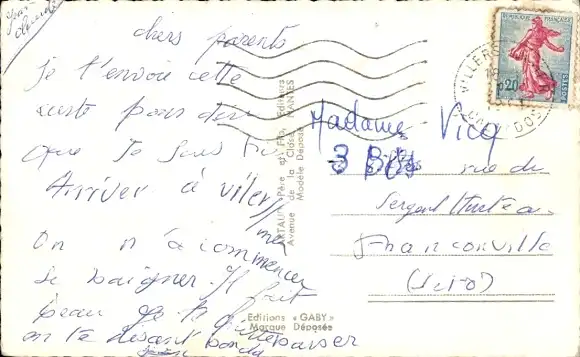 chers parents
je t'envoie cette
carte pour dire
que je suis
Arriver à viler
mer
On n a commencer
se baigner. Il fait
beau je te
en te disant
Madame Vicq
3 Bis rue de
Sergent
Franconville
(S et O)
REPUBLIQUE FRANÇAISE
0,20
POSTES
VILLERS
CALVADOS
ARTAUD Père et Fils, Editeurs
Avenue de la Close, NANTES
Modèle Déposé
Editions «GABY»
Marque Déposée